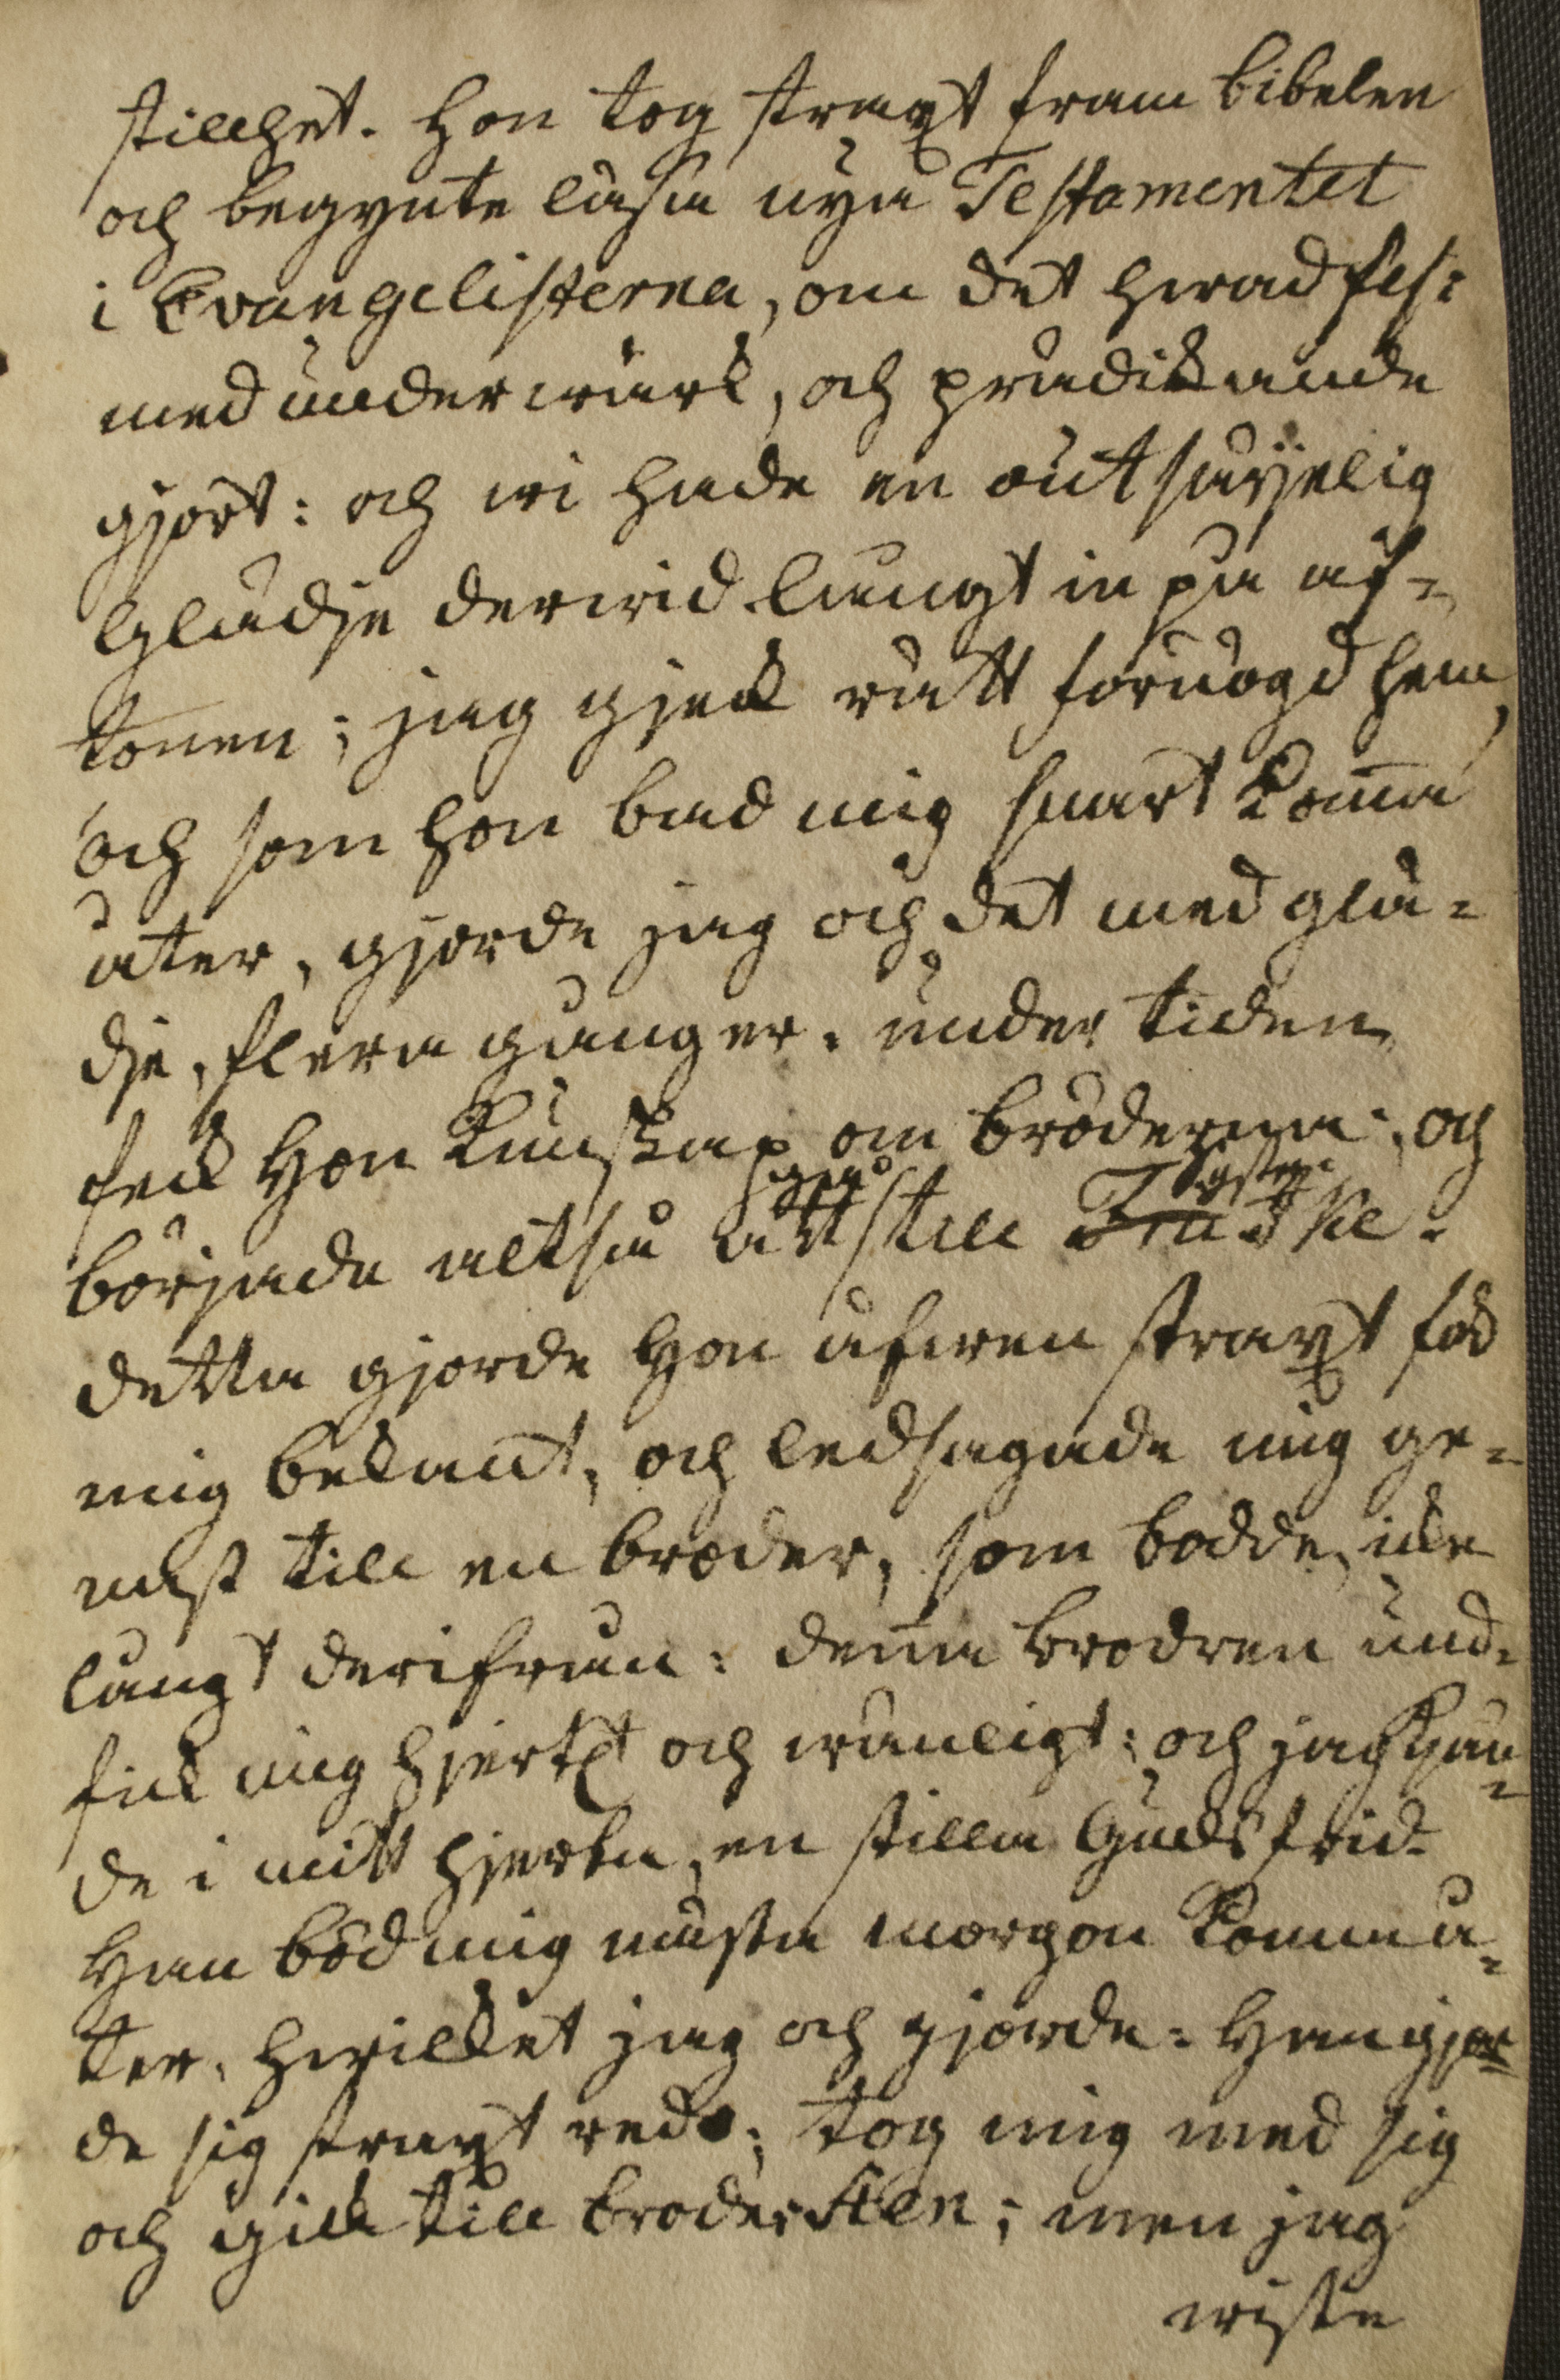 stillhet. Hon tog straxt fram bibelen
och begynte läsa nya Testamentet
i Evangelisterna, om det hwad Jes:
med underwärk, och prædikande
gjort: och wi hade en outsäijelig
Glädje derwid långt in på af-
tonen; jag gjeck rätt förnögd hem,
och som hon bad mig snart koma
åter, gjorde jag och det med glä-
dje, flera gånger. under tiden
feck Hon kunskap om bröderna: och
började altså att till
detta gjorde Hon äfwen straxt för
mig bekant, och ledsagade mig ge-
nast till en broder, som bodde icke
långt derifrån: dena brodren und-
fick mig hjertel: och wänligt: och jag kän-
de i mitt hjerta, en stilla Guds frid.
Han böd mig nästa morgon komma å-
ter. hwilket jag och gjorde: Han gjor-
de sig straxt redo; tog mig med sig
och gick till broder Sten; men jag
wiste